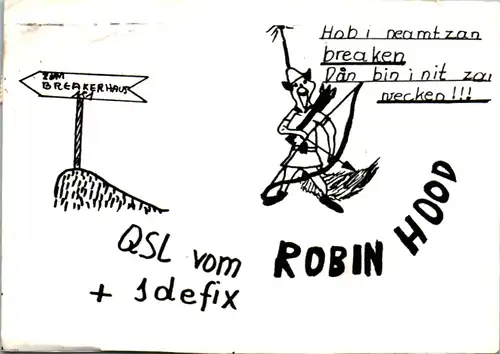 Hob i neamtzan
breaken
Dån bin i nit za
wecken!!!
ZUM
BREAKERHAUS
QSL vom ROBIN HOOD
+ 1defix